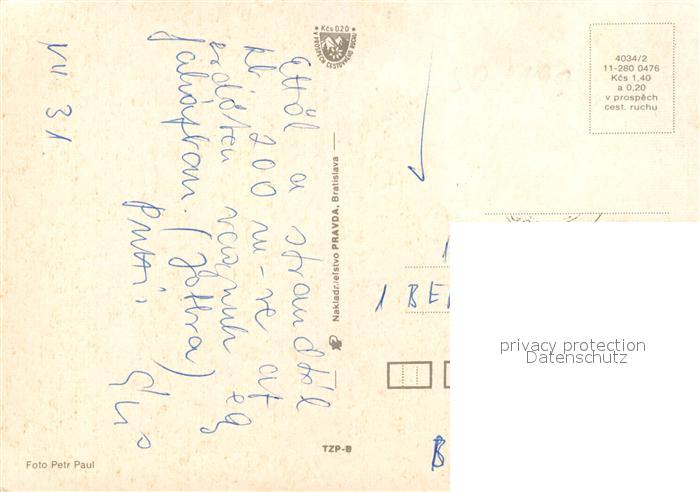 Kčs 0,20
V PROSPĚCH CESTOVNÉHO RUCHU
4034/2
11-280 0476
Kčs 1,40
a 0,20
v prospěch
cest. ruchu
VII 31.
Ettől a strandtól
kb 200 m-re az
erdőben vagyunk egy
(jobbra)
Puszi
Nakladateľstvo PRAVDA, Bratislava
1 BE
B
TZP-B
Foto Petr Paul
privacy protection
Datenschutz